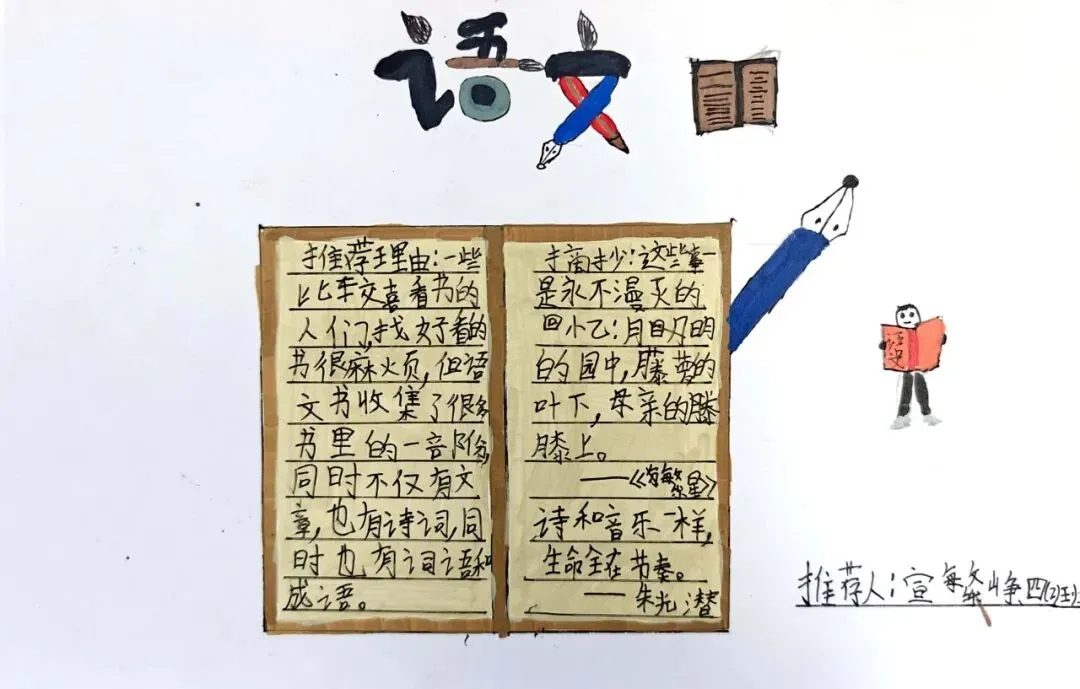 语文
推荐理由：一些
比较交喜看书的
人们，找好看的
书很麻火页，但语
文书收集了很多
书里的一部份，
同时不仅有文
章，也有诗词，同
时也有词语和
成语。
摘抄：这些事
是永不漫灭的
回小乙：月日月明
的园中，藤萝的
叶下，母亲的膝
膝上。
——《繁星》
诗和音乐一样，
生命全在节奏。
——朱光潜
语文
推荐人：宣 峥四(2)班